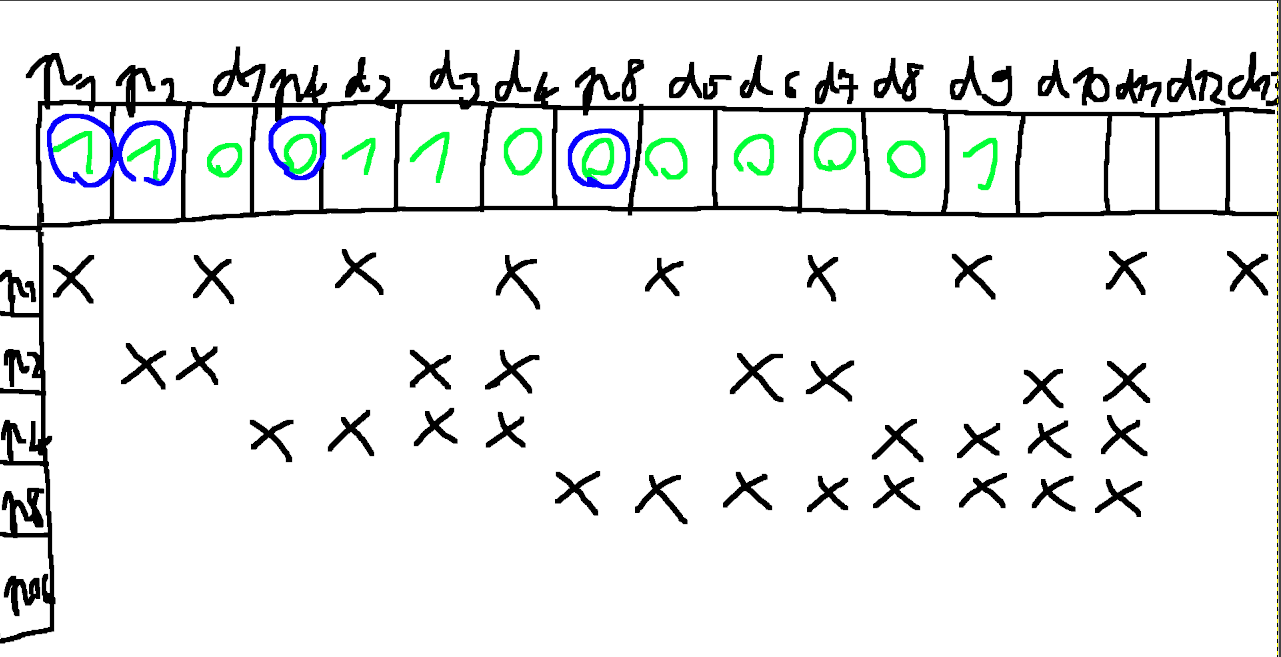 p1 p2 d1 p4 d2 d3 d4 p8 d5 d6 d7 d8 d9 d10 d11 d12 d13
1 1 0 0 1 1 0 0 0 0 0 0 1
p1 X X X X X X X X X
p2 X X X X X X X X
p4 X X X X X X X X
p8 X X X X X X X X